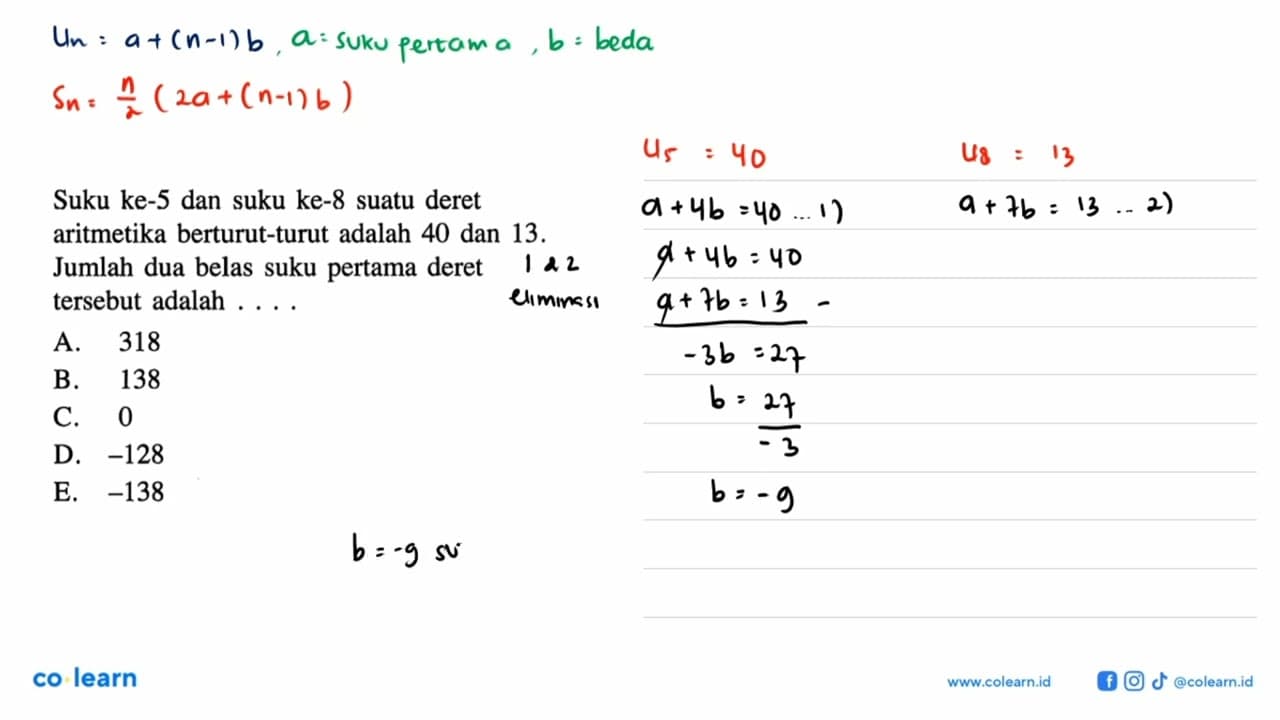 Un = a + (n-1) b, a = suku pertama, b = beda
Sn = n/2 (2a + (n-1) b)
Suku ke-5 dan suku ke-8 suatu deret
aritmetika berturut-turut adalah 40 dan 13.
Jumlah dua belas suku pertama deret
tersebut adalah . . . .
A. 318
B. 138
C. 0
D. –128
E. –138
1 & 2
eliminasi
U5 = 40
a + 4b = 40 ... 1)
a + 4b = 40
a + 7b = 13 -
-3b = 27
b = 27/-3
b = -9
U8 = 13
a + 7b = 13 .. 2)
b = -9 su
co learn
www.colearn.id
@colearn.id